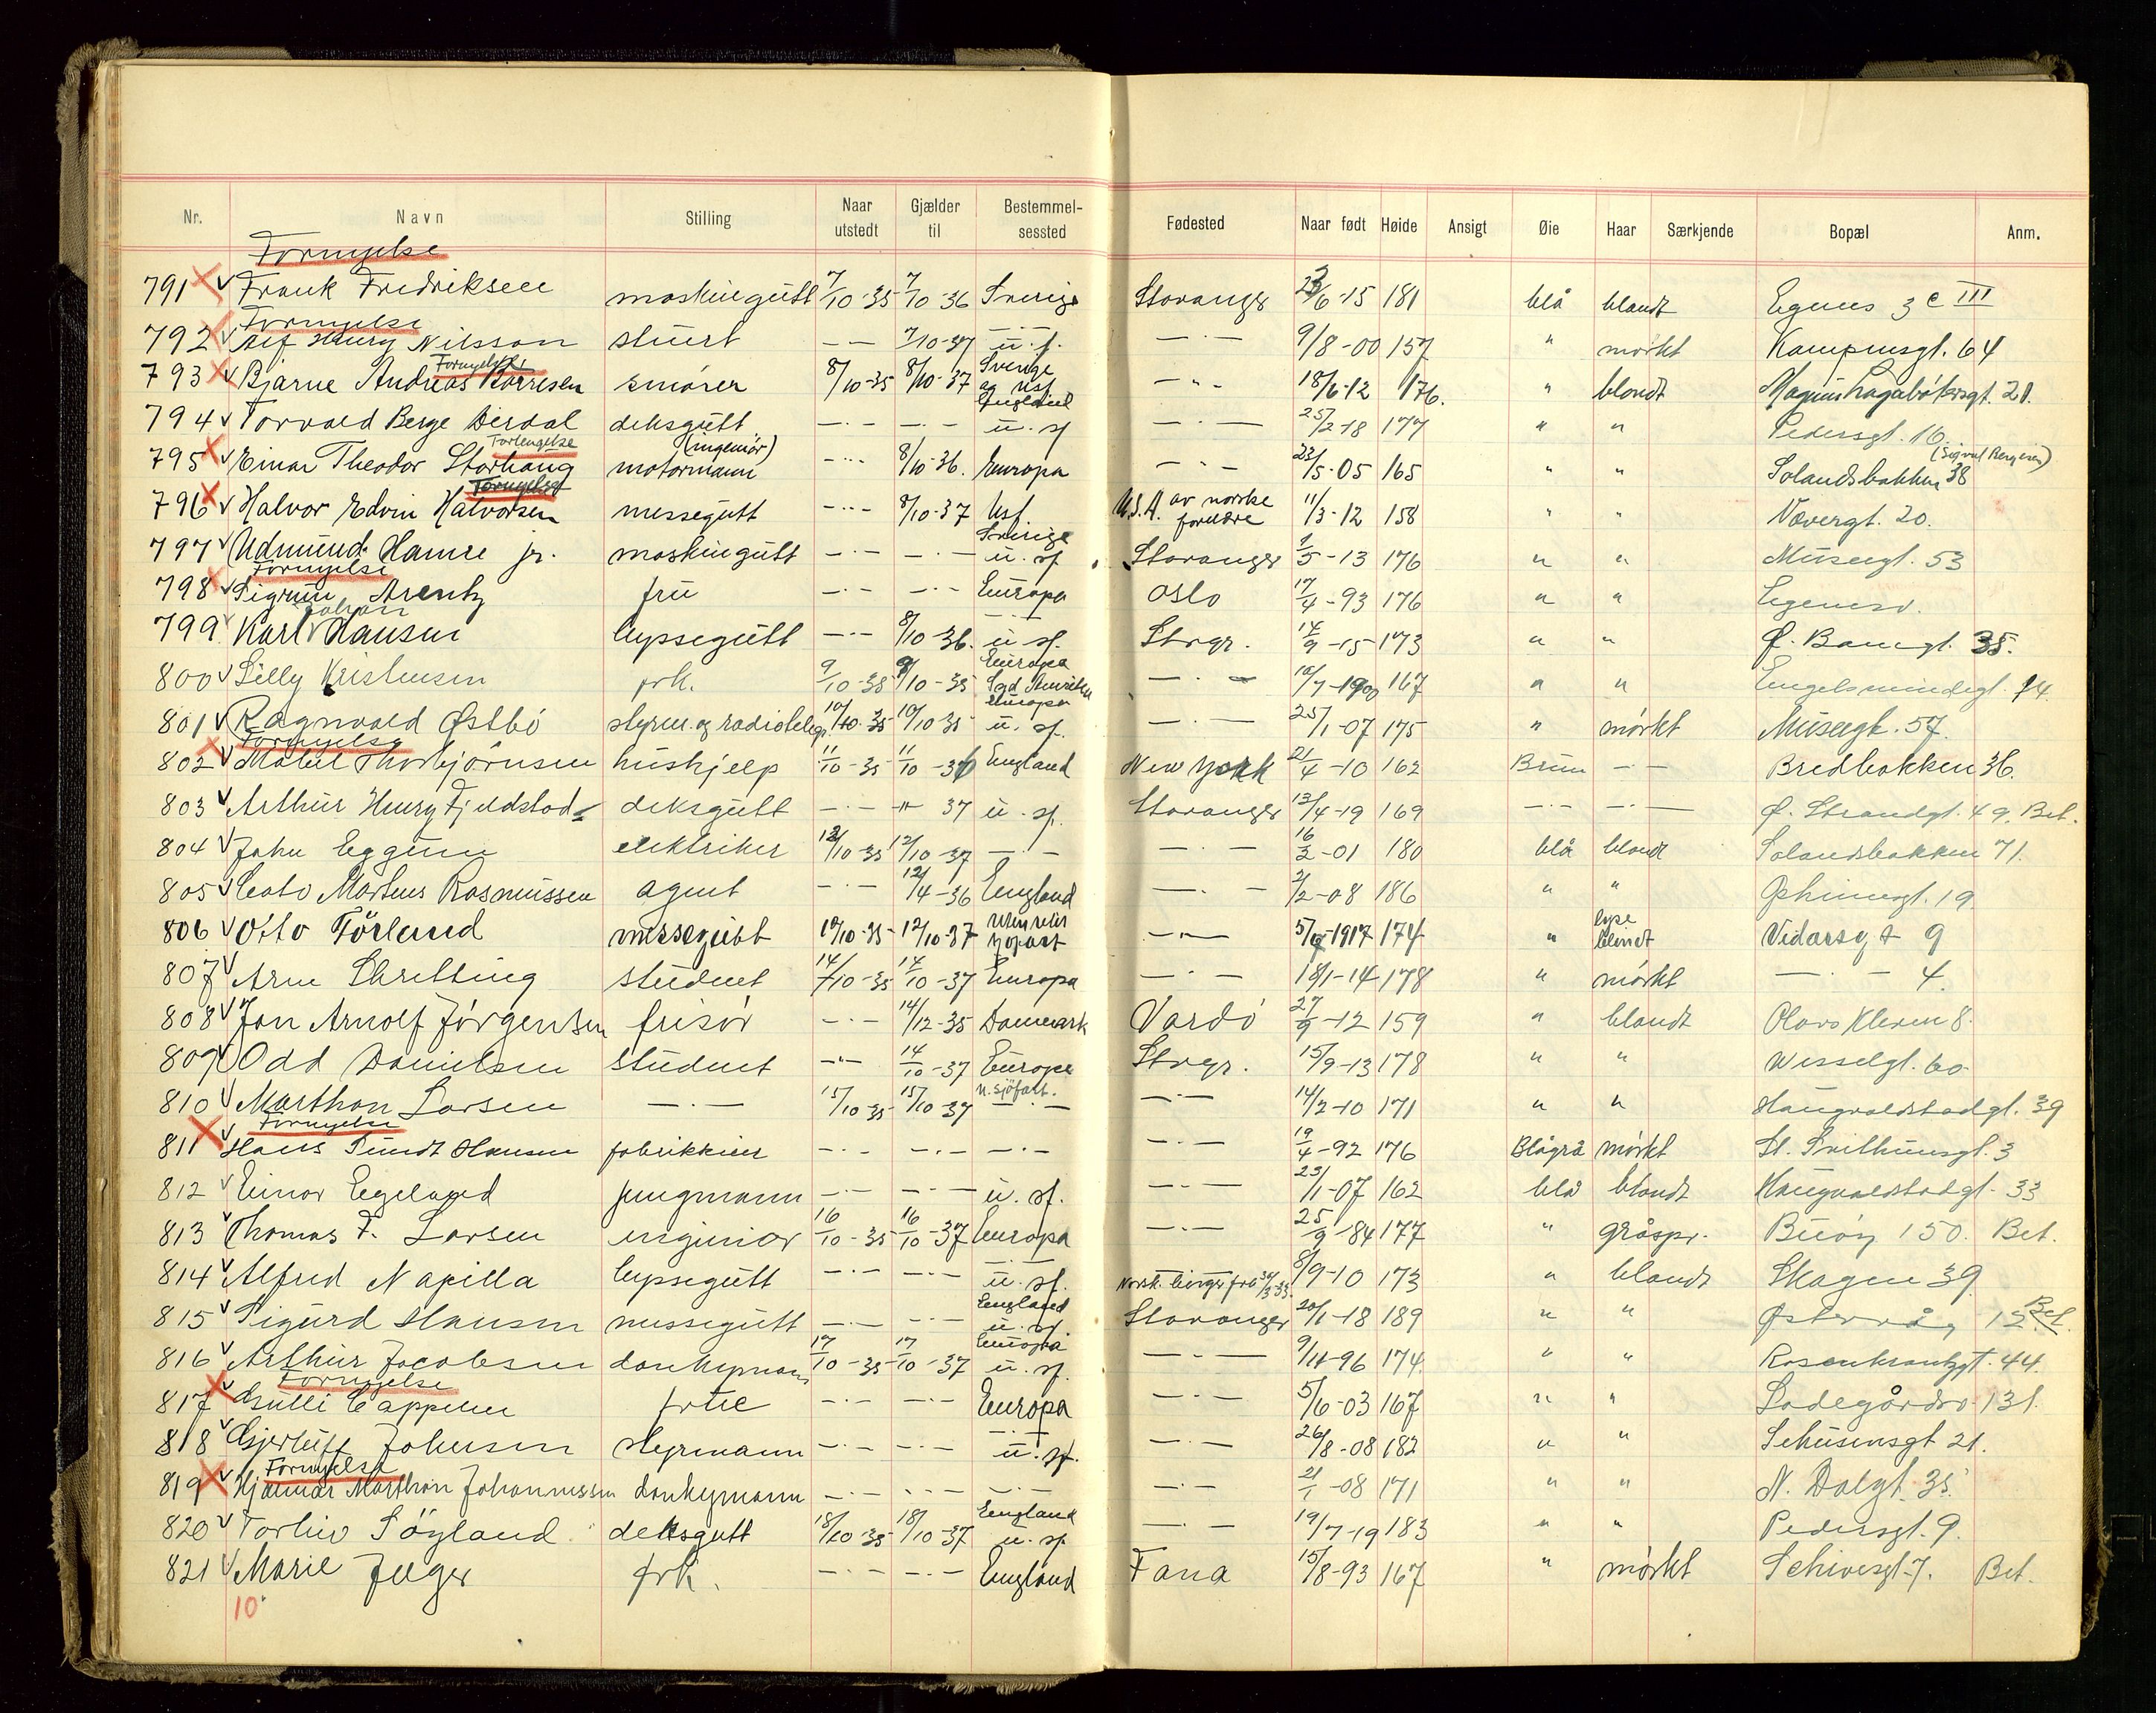 Nr. Navn Stilling Naar utstedt Gjælder til Bestemmelsessted Fødested Naar født Høide Ansigt Øie Haar Særkjende Bopæl Anm.
Fornyelse
791 Frank Fredriksen maskingutt 7/10-35 7/10-36 Sverige Stavanger 23/6-15 181 blå blondt Egenes 3 c III
Fornyelse
792 Alf Henry Nilsson stuert — — 7/10-37 u.f. — · — 9/8-00 157 " mørkt Kampensgt. 64
Fornyelse Sverige
793 Bjarne Andreas Børresen smører 8/10-35 8/10-37 og Usf — · — 18/6-12 176. " blondt Magnus Lagabøtersgt. 21.
England
794 Torvald Berge Dirdal deksgutt — · — — · — u. sf — · — 25/2-18 177 " " Pedersgt. 16
Forlengelse (ingeniør) (Sigval Bergesen)
795 Einar Theodor Storhaug motormann — · — 8/10-36. Europa — · — 23/5-05 165 " " Solandsbakken 38
Fornyelse
796 Halvor Edvin Halvorsen messegutt — · — 8/10-37 Usf U.S.A. av norske foreldre 11/3-12 158 " " Nævergt. 20.
Sverige
797 Admund Hamre jr. maskingutt — · — — · — u. sf Stavanger 1/5-13 176 " " Museegt. 53
Fornyelse
798 Sigrun Arentz frü — · — — · — Europa Oslo 17/4-93 176 " " Egenesv.
Johan — · —
799 Karl Hansen byssegutt — · — 8/10-36. u sf. Stvgr. 14/9-15 173 " " Ø. Banegt. 35.
Europa
800 Lilly Kristensen frk. 9/10-35 9/10-35 Syd Amerika — · — 16/7-1900 167 " " Engelsmindegt. 14
Europa
801 Ragnvald Østbö styrm. og radiotelegr. 10/10-35 10/10-35 u. sf. — · — 25/1-07 175 " mørkt Museegt. 57.
Fornyelse
802 Mabel Thorbjörnsen hushjelp 11/10-35 11/10-36 England New York 21/4-10 162 Brun — · — Bredbakken 36.
803 Arthur Henry Fjeldstad deksgutt — · — — " — 37 u. sf. Stavanger 13/4-19 169 — · — — · — Ø. Strandgt. 49. Bet.
804 John Eggum elektriker 12/10-35 12/10-37 — · — — · — 16/2-01 180 blå blondt Solandsbakken 71.
805 Cato Martens Rasmussen agent — · — 12/4-36 England — · — 2/2-08 186 " " 19
lyse
806 Otto Törland messegutt 12/10-35 12/10-37 — · — 5/9-1917 174 " blondt Vidarsgt 9
807 Arne Skretting student 14/10-35 14/10-37 Europa — · — 18/1-14 178 " mørkt — · — 4.
808 Jon Arnolf Jörgensen frisör — · — 14/12-35 Danmark Vardö 27/9-12 159 " blondt Olavs Kleven 8.
809 Odd Danielsen student — " — 14/10-37 Europa Stvgr. 15/9-13 178 " " Wesselgt. 60
u. sjöfart.
810 Marthon Larsen — · — 15/10-35 15/10-37 — · — — · — 14/2-10 171 " " Haugvaldstadgt. 39
Fornyelse
811 Hans Tundt Hansen fabrikkeier — · — — · — — · — — · — 19/4-92 176 Blågrå mørkt St. Svithunsgt. 3
812 Einar Egeland jungmann — · — — · — u. sf. — · — 23/1-07 162 blå blondt Haugvaldstadgt. 33
813 Thomas F. Larsen ingeniør 16/10-35 16/10-37 Europa — · — 25/9-84 177 " gråspr. Buöy 150. Bet.
814 Alfred Napilla byssegutt — · — — · — u. sf. Norsk borger fra 30/3-33. 8/9-10 173 " blondt Skagen 39
England
815 Sigurd Hansen messegutt — · — — · — u. sf Stavanger 20/1-18 189 " " Østervåg 12 Bet.
Europa
816 Arthur Jacobsen donkeymann 17/10-35 17/10-37 u. sf. — · — 9/11-96 174. " " Rosenkrantzgt. 44.
Fornyelse
817 Gulli Cappelen frue — · — — · — Europa — · — 5/6-03 167 " " Ladegårdsv 131.
818 Gjerluff Johnsen styrmann — · — — · — u. sf. — · — 26/8-08 182 " " Sehusensgt 21.
Fornyelse
819 Hjalmar Marthon Johannessen donkeymann — · — — · — — · — — · — 21/1-08 171 " " N. Dalgt. 35.
England
820 Torleiv Söyland deksgutt 18/10-35 18/10-37 u. sf — · — 19/7-19 183 " " Pedersgt. 9.
821 Marie Jeger frk. — · — — · — England Fana 15/8-93 167 " mørkt Schivesgt. 7. Bet.
10